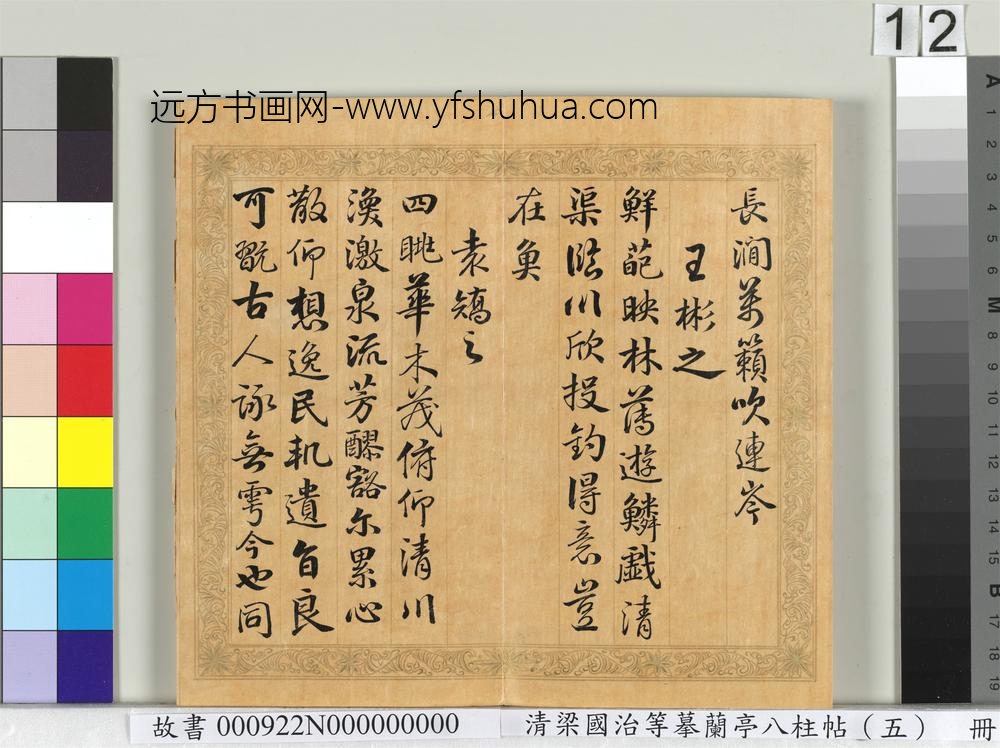 12
远方书画网-www.yfshuhua.com
長澗萬籟吹連岑
王彬之
鮮葩映林薄遊鱗戲清
渠臨川欣投釣得意豈
在魚
袁矯之
四眺華木茂俯仰清川
渙激泉流芳醪豁尔累心
散仰想逸民軌遺音良
可翫古人詠無雩今也同
A 1 2 3 4 5 6 M 8 9 10 11 12 13 14 15 B 17 18 19
故書 000922N000000000
清梁國治等摹蘭亭八柱帖（五） 冊